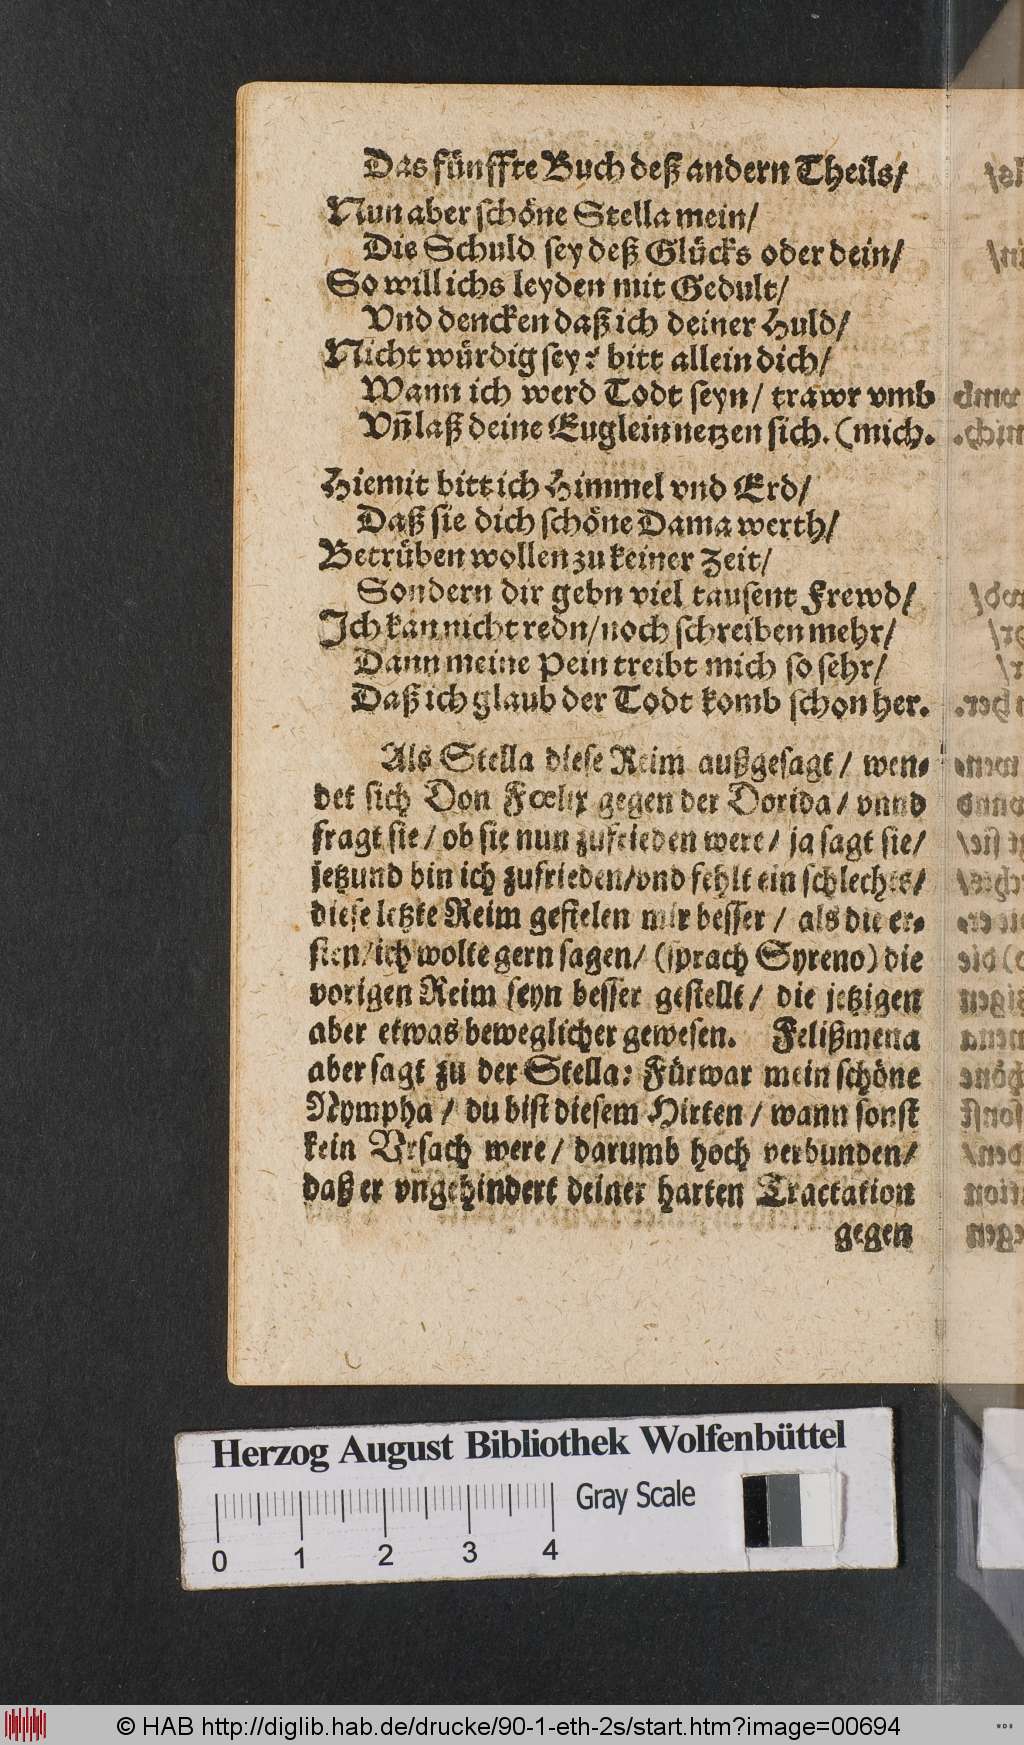 Das fünffte Buch deß andern Theils/
Nun aber schöne Stella mein/
Die Schuld sey deß Glücks oder dein/
So will ichs leyden mit Gedult/
Vnd dencken daß ich deiner Huld/
Nicht würdig sey: bitt allein dich/
Wann ich werd Todt seyn/ trawr vmb
Vñ laß deine Euglein netzen sich. (mich.
Hiemit bitt ich Himmel vnd Erd/
Daß sie dich schöne Dama werth/
Betrüben wollen zu keiner Zeit/
Sondern dir gebn viel tausent Frewd/
Ich kan nicht redn/ noch schreiben mehr/
Dann meine Pein treibt mich so sehr/
Daß ich glaub der Todt komb schon her.
Als Stella diese Reim außgesagt/ wen-
det sich Don Fœlix gegen der Dorida/ vnnd
fragt sie/ ob sie nun zufrieden were/ ja sagt sie/
jetzund bin ich zufrieden/ vnd fehlt ein schlechts/
diese letzte Reim gefielen mir besser/ als die er-
sten/ ich wolte gern sagen/ (sprach Syreno) die
vorigen Reim seyn besser gestellt/ die jetzigen
aber etwas beweglicher gewesen. Felißmena
aber sagt zu der Stella: Fürwar mein schöne
Nympha/ du bist diesem Hirten/ wann sonst
kein Vrsach were/ darumb hoch verbunden/
daß er vngehindert deiner harten Tractation
gegen
Herzog August Bibliothek Wolfenbüttel
Gray Scale
0 1 2 3 4
© HAB http://diglib.hab.de/drucke/90-1-eth-2s/start.htm?image=00694